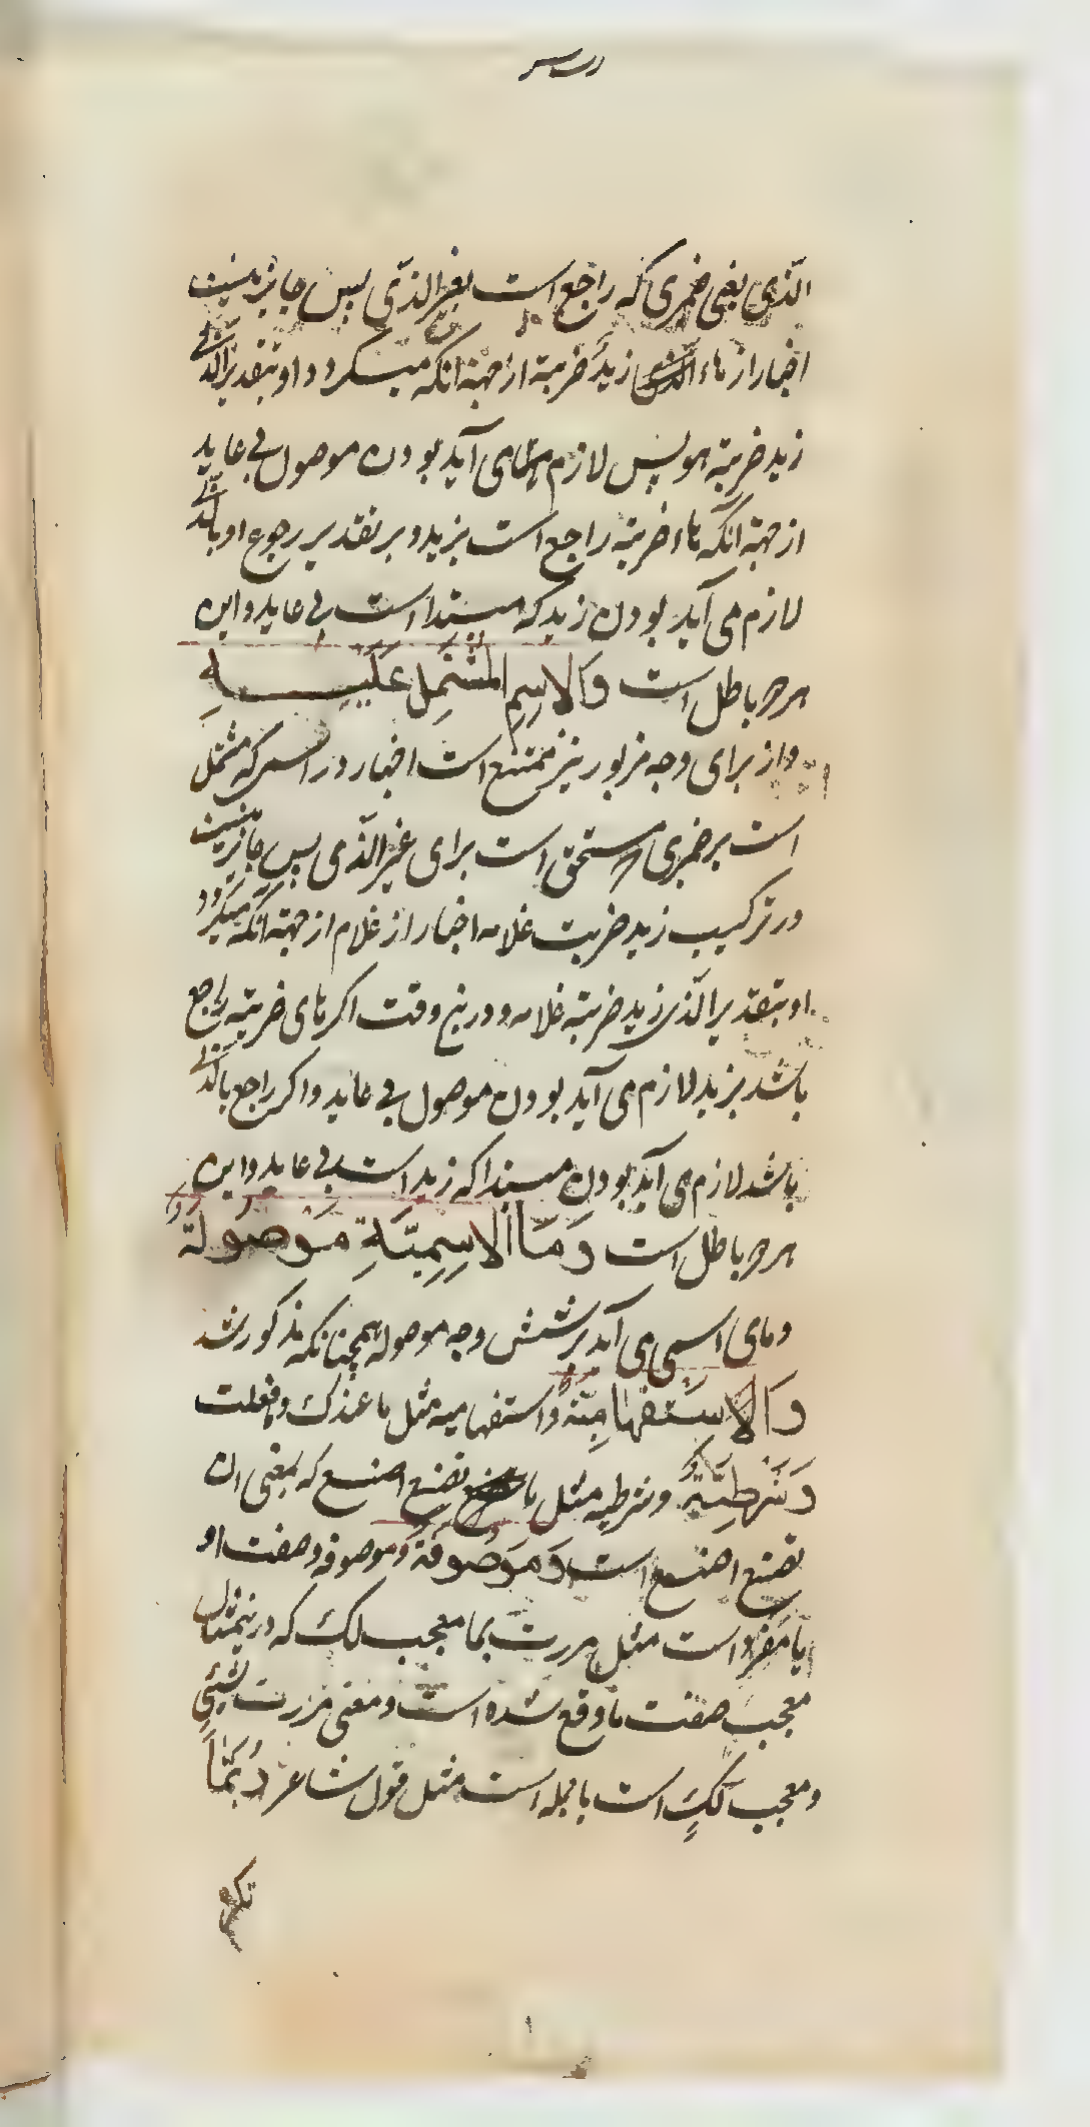 الذی یعنی ضمیری که راجع است بغیر الذی پس جایز نیست
اخبار از هاء زید ضربته از جهة انکه میکردد او بتقدیر الذی
زید ضربته هو پس لازم می آید بودن موصول بی عاید
از جهة آنکه هاء ضربته راجع است بزید و بر تقدیر رجوع او بالذی
لازم می آید بودن زید که مبتدا است بی عاید و این
هر دو باطل است وَالاسِمِ المُشتَمِل عَلَیـهِ
و از برای وجه مزبور نیز ممتنع است اخبار در اسمی که مشتمل
است بر ضمیری که مستحق است برای غیر الذی پس جایز نیست
در ترکیب زید ضربت غلامه اخبار از غلام از جهة آنکه میکردد
او بتقدیر الذی زید ضربته غلامه و درین وقت اکر های ضربته راجع
باشد بزید لازم می آید بودن موصول بی عاید و اکر راجع بالذی
باشد لازم می آید بودن مبتدا که زید است بی عاید و این
هر دو باطل است وَمَا الاسِمِیَّةِ مَوصُولَةٌ
و مای اسمی می آید بر شش وجه موصوله همچنانکه مذکور شد
وَالاِستِفهامِیَّةٌ و استفهامیه مثل ما عندک و ما فعلت
وَشَرطِیَّةٌ و شرطیه مثل ما تصنع اصنع که بمعنی ان
تصنع اصنع است وَمَوصُوفَةٌ و موصوفه و صفت او
یا مفرد است مثل مررت بما معجب لک که درینمثال
معجب صفت ما واقع شده است و معنی مررت بشیءٍ
و معجب لکَ است یا جمله است مثل قول شاعر رُبَمَّا
تکره